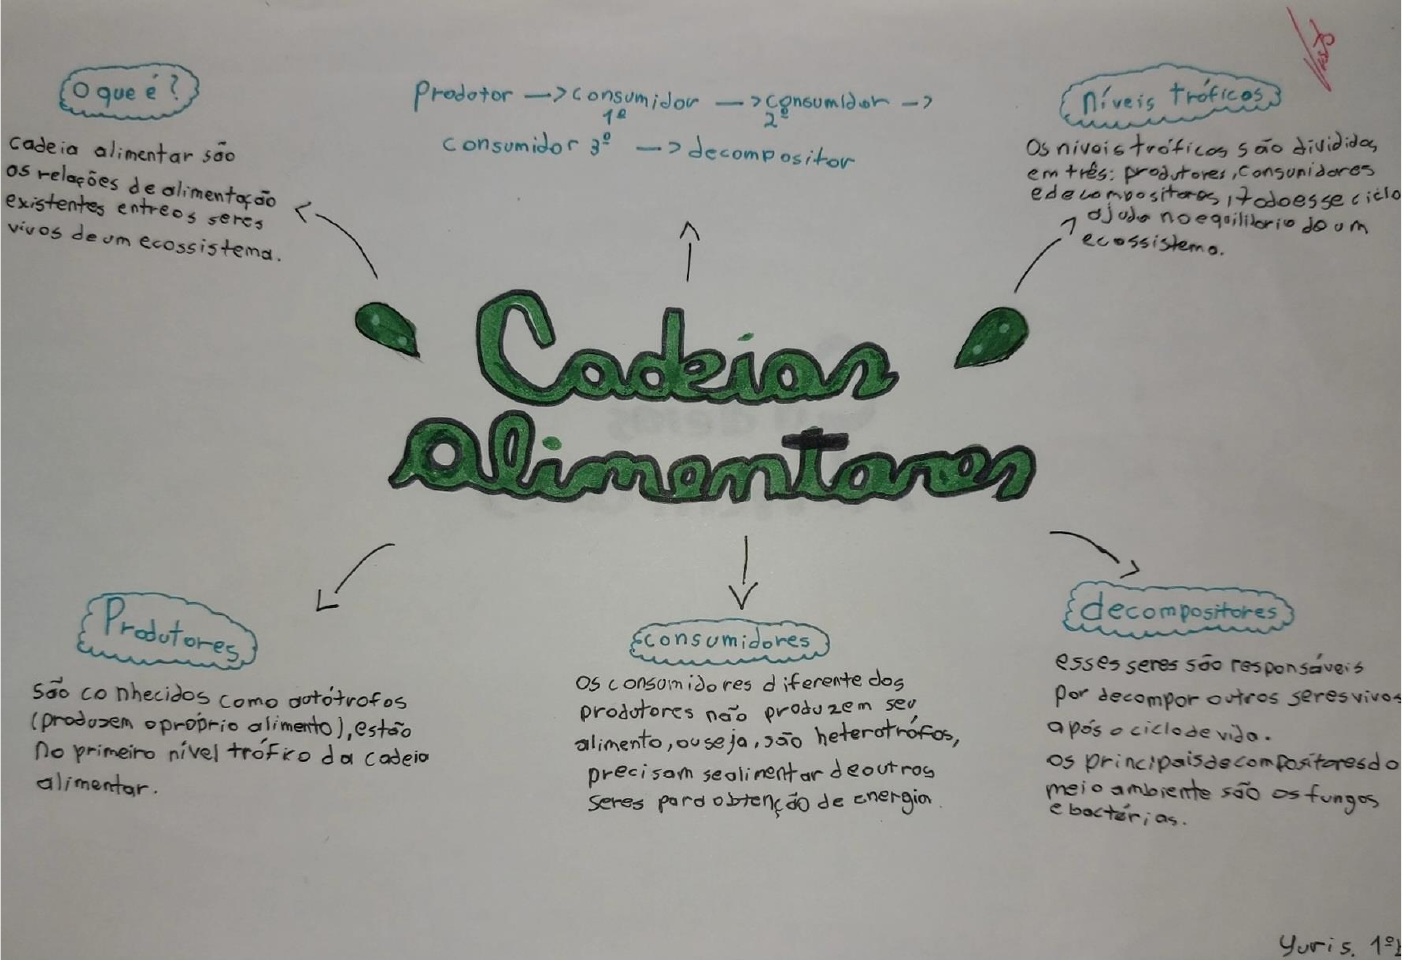 O que é?
cadeia alimentar são
os relações de alimentação
existentes entre os seres
vivos de um ecossistema.
Produtor —> consumidor 1º —> consumidor 2º —>
consumidor 3º —> decompositor
níveis tróficos
Os nívois tróficos são divididos
em três: produtores, consumidores
e decompositoros, todo esse ciclo
ajuda no equilíbrio do um
ecossistema.
Visto
Cadeias
alimentares
Produtores
são conhecidos como autótrofos
(produzem o próprio alimento), estão
no primeiro nível trófico da cadeia
alimentar.
consumidores
os consumidores diferente dos
produtores não produzem seu
alimento, ou seja, são heterotrófos,
precisam se alimentar de outros
seres para obtenção de energia.
decompositores
esses seres são responsáveis
por decompor outros seres vivos
após o ciclo de vida.
os principais decompositores do
meio ambiente são os fungos
e bactérias.
Yuri S. 1º